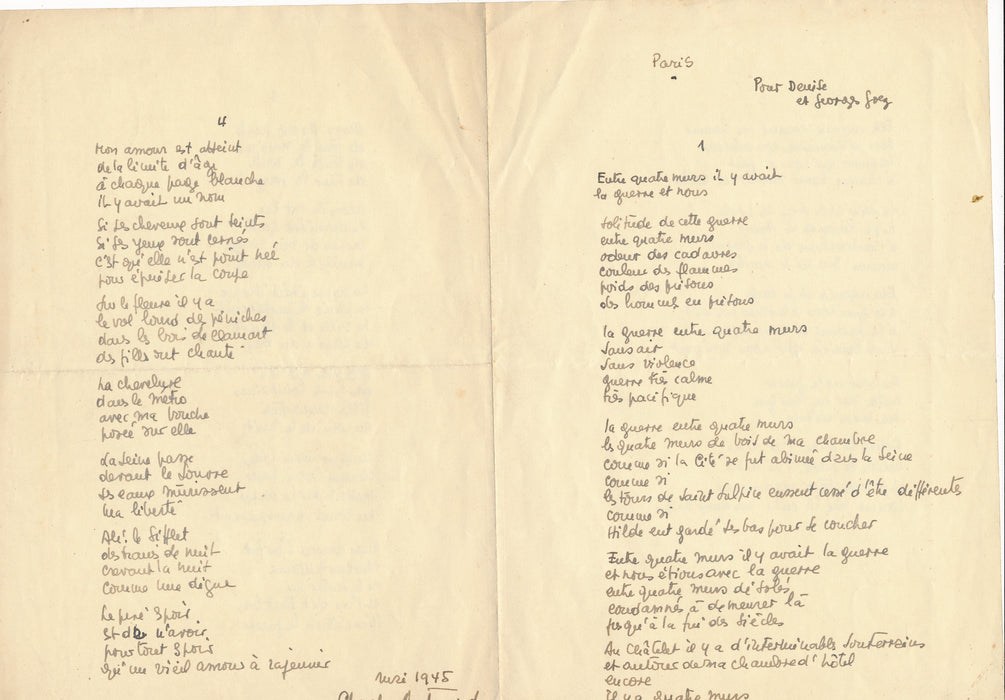 4
Mon amour est atteint
de la limite d'âge
à chaque page blanche
Il y avait un nom
Si ses cheveux sont teints
Si ses yeux sont cernés
C'est qu'elle n'est point née
pour épuiser la coupe
Sur le fleuve il y a
le vol lourd de péniches
dans les bois de Clamart
des filles ont chanté
La chevelure
dans le métro
avec ma bouche
posée sur elle
La Seine passe
devant le Louvre
ses eaux mûrissent
ma liberté
Ah! le sifflet
des trains de nuit
crevant la nuit
comme une digue
Le pire espoir
est de n'avoir
pour tout espoir
qu'un vieil amour à rajeunir
mai 1945
Paris
Pour Denise
et Georges
1
Entre quatre murs il y avait
la guerre et nous
solitude de cette guerre
entre quatre murs
odeur des cadavres
couleur des flammes
poids des prisons
des hommes en prisons
la guerre entre quatre murs
sans air
sans violence
guerre très calme
très pacifique
la guerre entre quatre murs
les quatre murs de bois de ma chambre
comme si la Cité se fut abimée dans la Seine
comme si
les tours de Saint Sulpice eussent cessé d'être différentes
comme si
Hilde eut gardé ses bas pour se coucher
Entre quatre murs il y avait la guerre
et nous étions avec la guerre
entre quatre murs désolés
condamnés à demeurer là
jusqu'à la fin des siècles
Au Châtelet il y a d'interminables souterrains
et autour de ma chambre d'hôtel
encore
il y a quatre murs